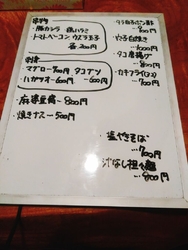 串物
・豚カシラ 鶏ハラミ
・トマトベーコン ウズラ玉子
各200円
刺身
・マグロー700円 タコブツ
・ハガツオー600円 ー600円
・麻婆豆腐ー800円
・焼きナスー500円
900円
1000円
・タコ唐揚げ
ー800円
・カキフライ(3コ)
ー700円
・塩やきそば
ー700円
・汁なし担々麺
ー800円